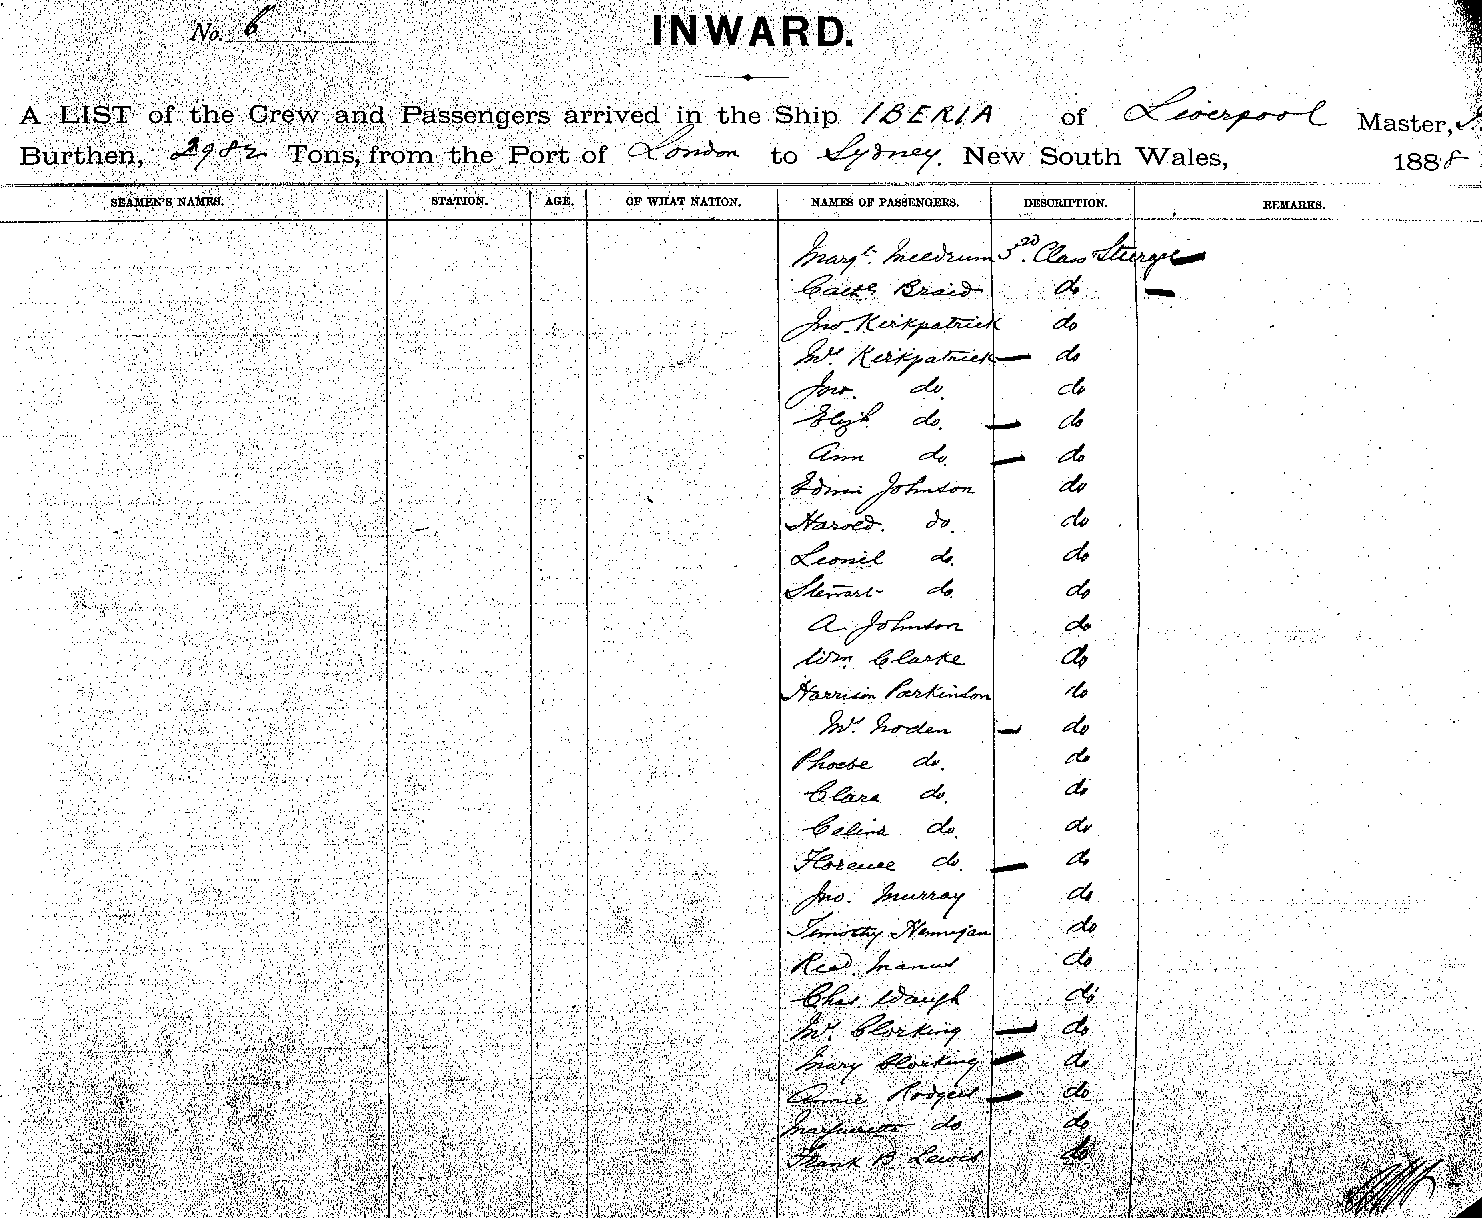 No. 6
INWARD.
A LIST of the Crew and Passengers arrived in the Ship IBERIA of Liverpool Master,
Burthen, 2982 Tons, from the Port of London to Sydney. New South Wales, 1888
SEAMEN'S NAMES. STATION. AGE. OF WHAT NATION. NAMES OF PASSENGERS. DESCRIPTION. REMARKS.
Margt. Meldrum 3rd. Class Steerage
Cathe Braid do
Jno. Kirkpatrick do
Mrs. Kirkpatrick do
Jno. do. do
Elizh. do. do
Ann do. do
Edwin Johnson do
Harold. do. do
Leonil do. do
Stewart do. do
A Johnson do
Wm. Clarke do
Harrison Parkinson do
Mrs. Noden do
Phoebe do. do
Clara do. do
Calina do. do
Florence do. do
Jno. Murray do
Timothy Hennigan do
Manus do
Chas Waugh do
Mrs. Clorking do
Mary Clorking do
Annie Rodgers do
do do
Frank B. Lewis do